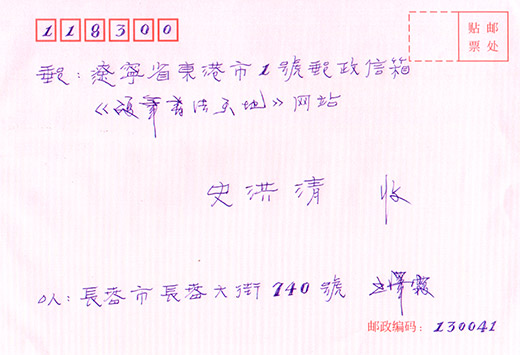 118300
贴邮
票处
郵:遼寧省東港市1號郵政信箱
《硬筆書法天地》网站
史洪清 收
长春市長春大街740號
邮政编码:130041